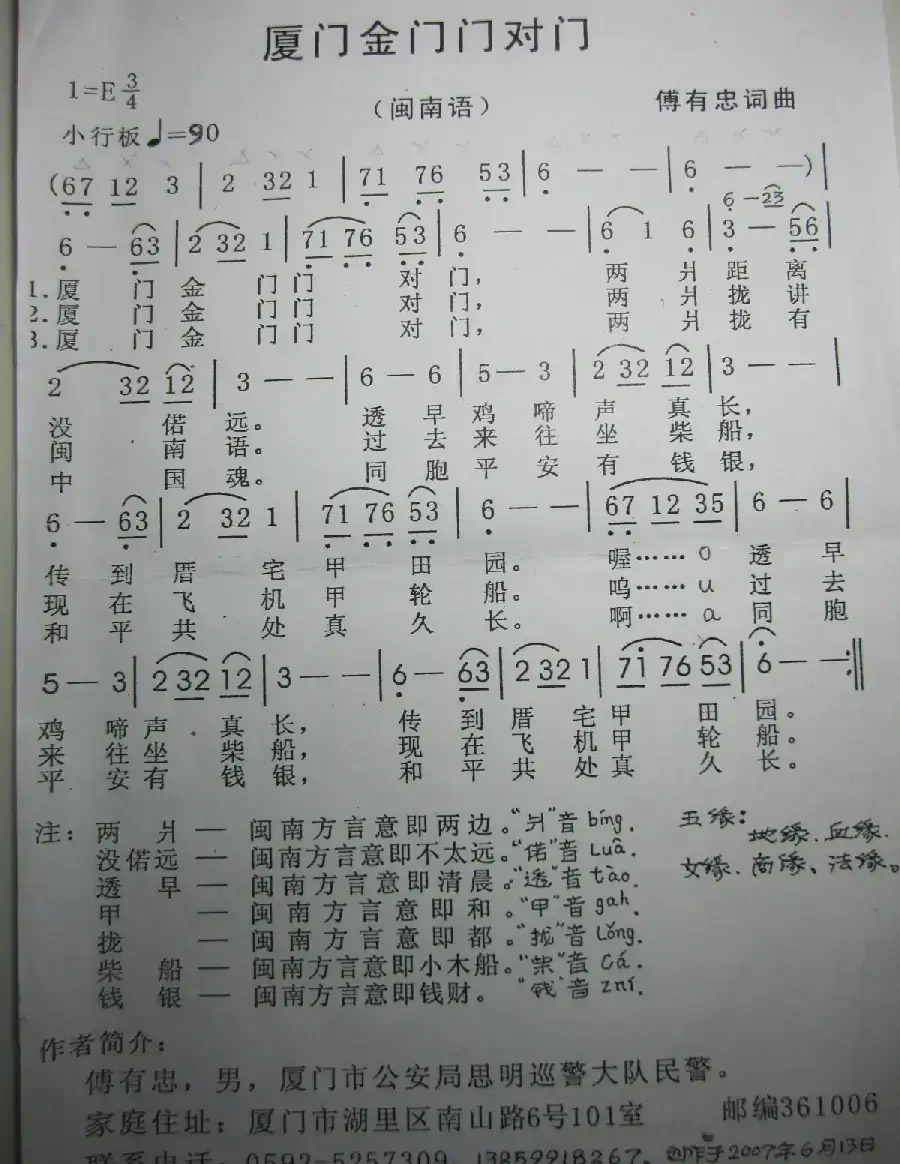 厦门金门门对门
1=E 3/4
（闽南语） 傅有忠词曲
小行板 ♩=90
(67 12 3 | 2 32 1 | 71 76 53 | 6 — — | 6 — —)|
6 — 23
6 — 63 | 2 32 1 | 71 76 53 | 6 — — | 6 1 6 | 3 — 56 |
1.厦 门 金 门 门 对 门， 两 爿 距 离
2.厦 门 金 门 门 对 门， 两 爿 拢 讲
3.厦 门 金 门 门 对 门， 两 爿 拢 有
2 32 12 | 3 — — | 6 — 6 | 5 — 3 | 2 32 12 | 3 — — |
没 偌 远。 透 早 鸡 啼 声 真 长，
闽 南 语。 过 去 来 往 坐 柴 船，
中 国 魂。 同 胞 平 安 有 钱 银，
6 — 63 | 2 32 1 | 71 76 53 | 6 — — | 67 12 35 | 6 — 6 |
传 到 厝 宅 甲 田 园。 喔…… o 透 早
现 在 飞 机 甲 轮 船。 呜…… u 过 去
和 平 共 处 真 久 长。 啊…… a 同 胞
5 — 3 | 2 32 12 | 3 — — | 6 — 63 | 2 32 1 | 71 76 53 | 6 — — :‖
鸡 啼 声 真 长， 传 到 厝 宅 甲 田 园。
来 往 坐 柴 船， 现 在 飞 机 甲 轮 船。
平 安 有 钱 银， 和 平 共 处 真 久 长。
注： 两 爿 — 闽南方言意即两边。“爿”音bíng.
没偌远 — 闽南方言意即不太远。“偌”音Luâ.
透 早 — 闽南方言意即清晨。“透”音tào.
甲 — 闽南方言意即和。“甲”音gah.
拢 — 闽南方言意即都。“拢”音Lǒng.
柴 船 — 闽南方言意即小木船。“柴”音Cá.
钱 银 — 闽南方言意即钱财。“钱”音zní.
五缘：
地缘、血缘、
文缘、商缘、法缘。
作者简介：
傅有忠，男，厦门市公安局思明巡警大队民警。
家庭住址：厦门市湖里区南山路6号101室 邮编361006
联系电话：0592-5257309、13859918267、创作于2007年6月13日